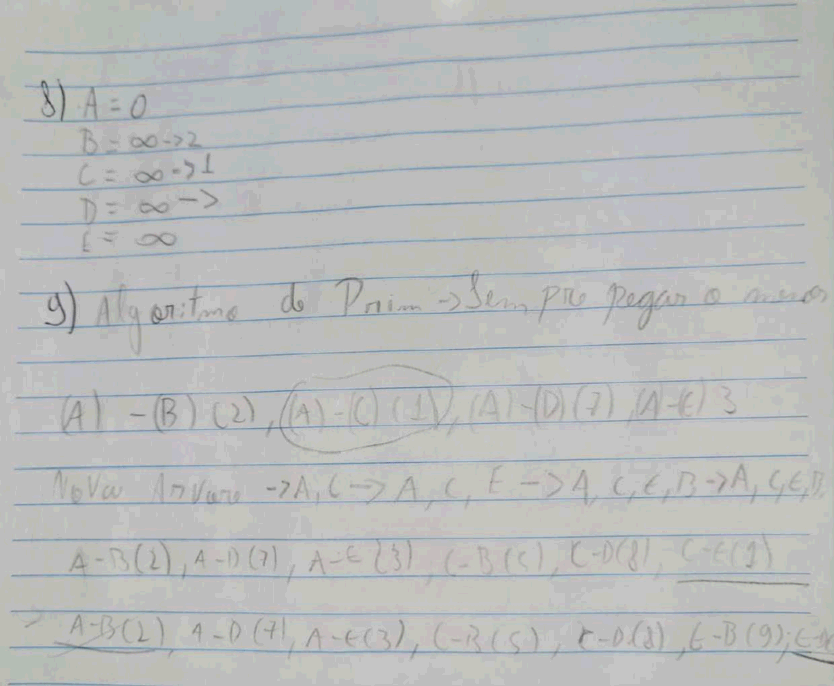 8) A = 0
B = ∞ -> 2
C = ∞ -> 1
D = ∞ ->
E = ∞
9) Algoritmo de Prim -> Sempre pegar o menor
(A) - (B) (2), (A) - (C) (1), (A) - (D) (7), (A-E) 3
Nova Arvore -> A, C -> A, C, E -> A, C, E, B -> A, C, E, B,
A-B(2), A-D(7), A-E(3), C-B(5), C-D(8), C-E(1)
> A-B(2), A-D(7), A-E(3), C-B(5), C-D(8), E-B(9);